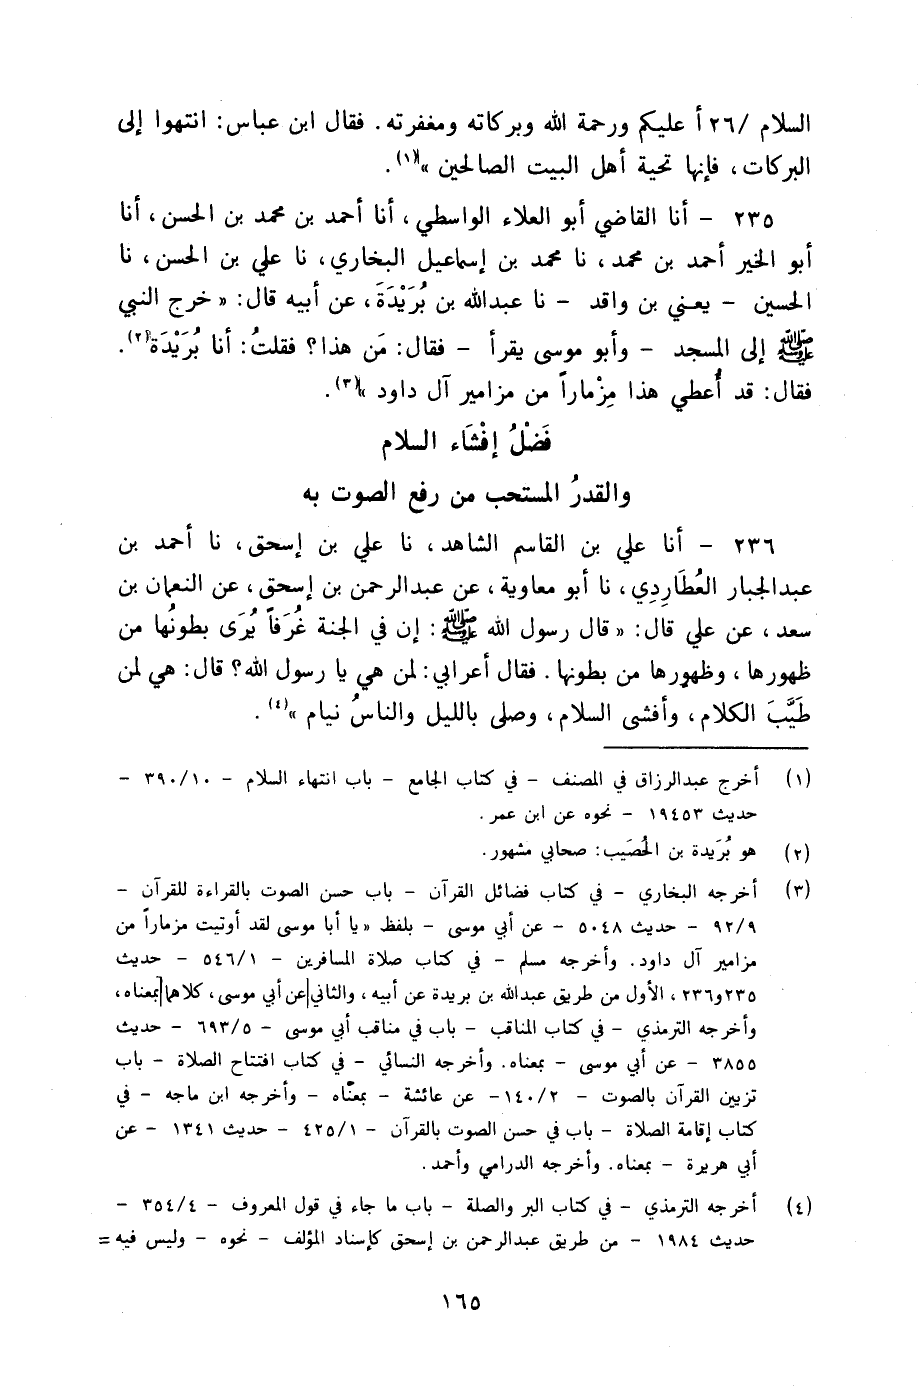 السلام /٢٦ أ عليكم ورحمة الله وبركاته ومغفرته. فقال ابن عباس: انتهوا إلى
البركات، فإنها تحية أهل البيت الصالحين »(١).
٢٣٥ – أنا القاضي أبو العلاء الواسطي، أنا أحمد بن محمد بن الحسن، أنا
أبو الخير أحمد بن محمد، نا محمد بن إسماعيل البخاري، نا علي بن الحسن، نا
الحسين – يعني بن واقد – نا عبدالله بن بُرَيْدَةَ، عن أبيه قال: « خرج النبي
ﷺ إلى المسجد – وأبو موسى يقرأ – فقال: مَن هذا؟ فقلتُ: أنا بُرَيْدَة(٢).
فقال: قد أُعطي هذا مِزْماراً من مزامير آل داود »(٣).
فَضْلُ إفْشَاء السلام
والقدرُ المستحب من رفع الصوت به
٢٣٦ – أنا علي بن القاسم الشاهد، نا علي بن إسحق، نا أحمد بن
عبدالجبار العُطَارِدِي، نا أبو معاوية، عن عبدالرحمن بن إسحق، عن النعمان بن
سعد، عن علي قال: « قال رسول الله ﷺ: إن في الجنة غُرَفاً يُرَى بطونُها من
ظهورها، وظهورها من بطونها. فقال أعرابي: لمن هي يا رسول الله؟ قال: هي لمن
طَيَّبَ الكلام، وأفشى السلام، وصلى بالليل والناسُ نيام »(٤).
(١) أخرج عبدالرزاق في المصنف – في كتاب الجامع – باب انتهاء السلام – ٣٩٠/١٠ –
حديث ١٩٤٥٣ – نحوه عن ابن عمر.
(٢) هو بُرَيدة بن الحُصَيب: صحابي مشهور.
(٣) أخرجه البخاري – في كتاب فضائل القرآن – باب حسن الصوت بالقراءة للقرآن –
٩٢/٩ – حديث ٥٠٤٨ – عن أبي موسى – بلفظ « يا أبا موسى لقد أوتيت مزماراً من
مزامير آل داود. وأخرجه مسلم – في كتاب صلاة المسافرين – ٥٤٦/١ – حديث
٢٣٥و٢٣٦، الأول من طريق عبدالله بن بريدة عن أبيه، والثاني عن أبي موسى، كلاهما بمعناه،
وأخرجه الترمذي – في كتاب المناقب – باب في مناقب أبي موسى – ٦٩٣/٥ – حديث
٣٨٥٥ – عن أبي موسى – بمعناه. وأخرجه النسائي – في كتاب افتتاح الصلاة – باب
تزيين القرآن بالصوت – ١٤٠/٢– عن عائشة – بمعناه – وأخرجه ابن ماجه – في
كتاب إقامة الصلاة – باب في حسن الصوت بالقرآن – ٤٢٥/١ – حديث ١٣٤١ – عن
أبي هريرة – بمعناه. وأخرجه الدرامي وأحمد.
(٤) أخرجه الترمذي – في كتاب البر والصلة – باب ما جاء في قول المعروف – ٣٥٤/٤ –
حديث ١٩٨٤ – من طريق عبدالرحمن بن إسحق كإسناد المؤلف – نحوه – وليس فيه =
١٦٥